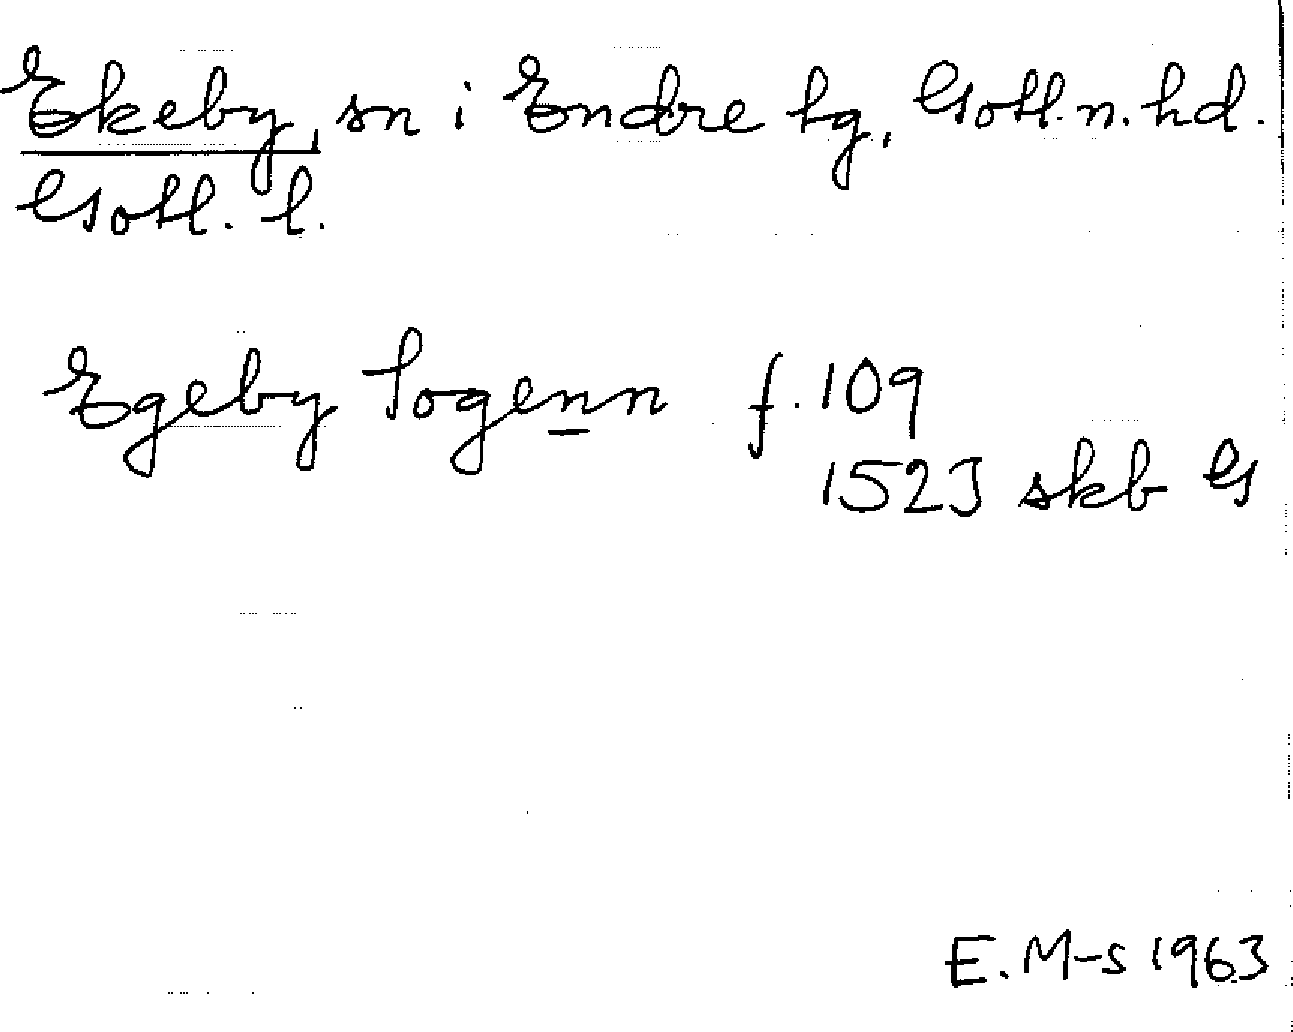 Ekeby, sn i Endre tg, Gotl. n. hd.
Gotl. l.
Egeby sogenn f. 109
1523 skb G
E. M-s 1963